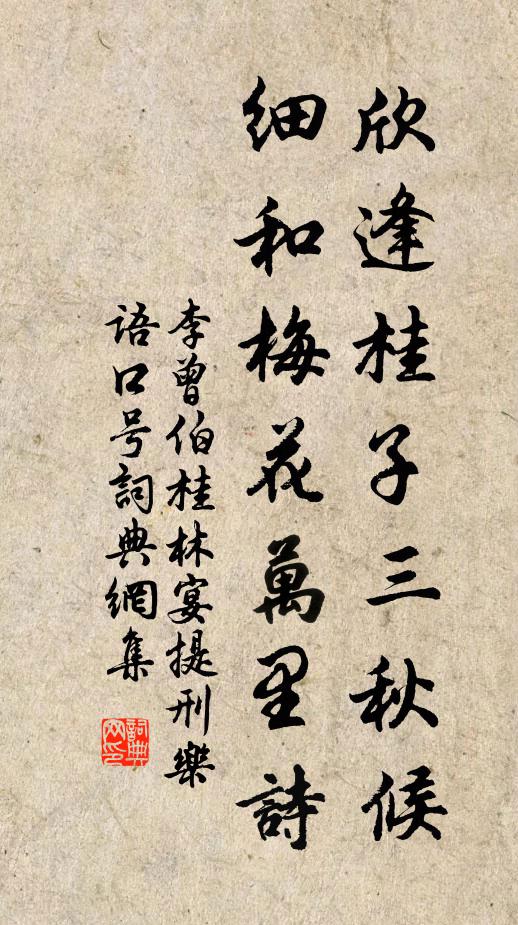 欣逢桂子三秋候
细和梅花萬里詩
李曾伯桂林宴提刑樂
语口号詞典網集
詞典网印